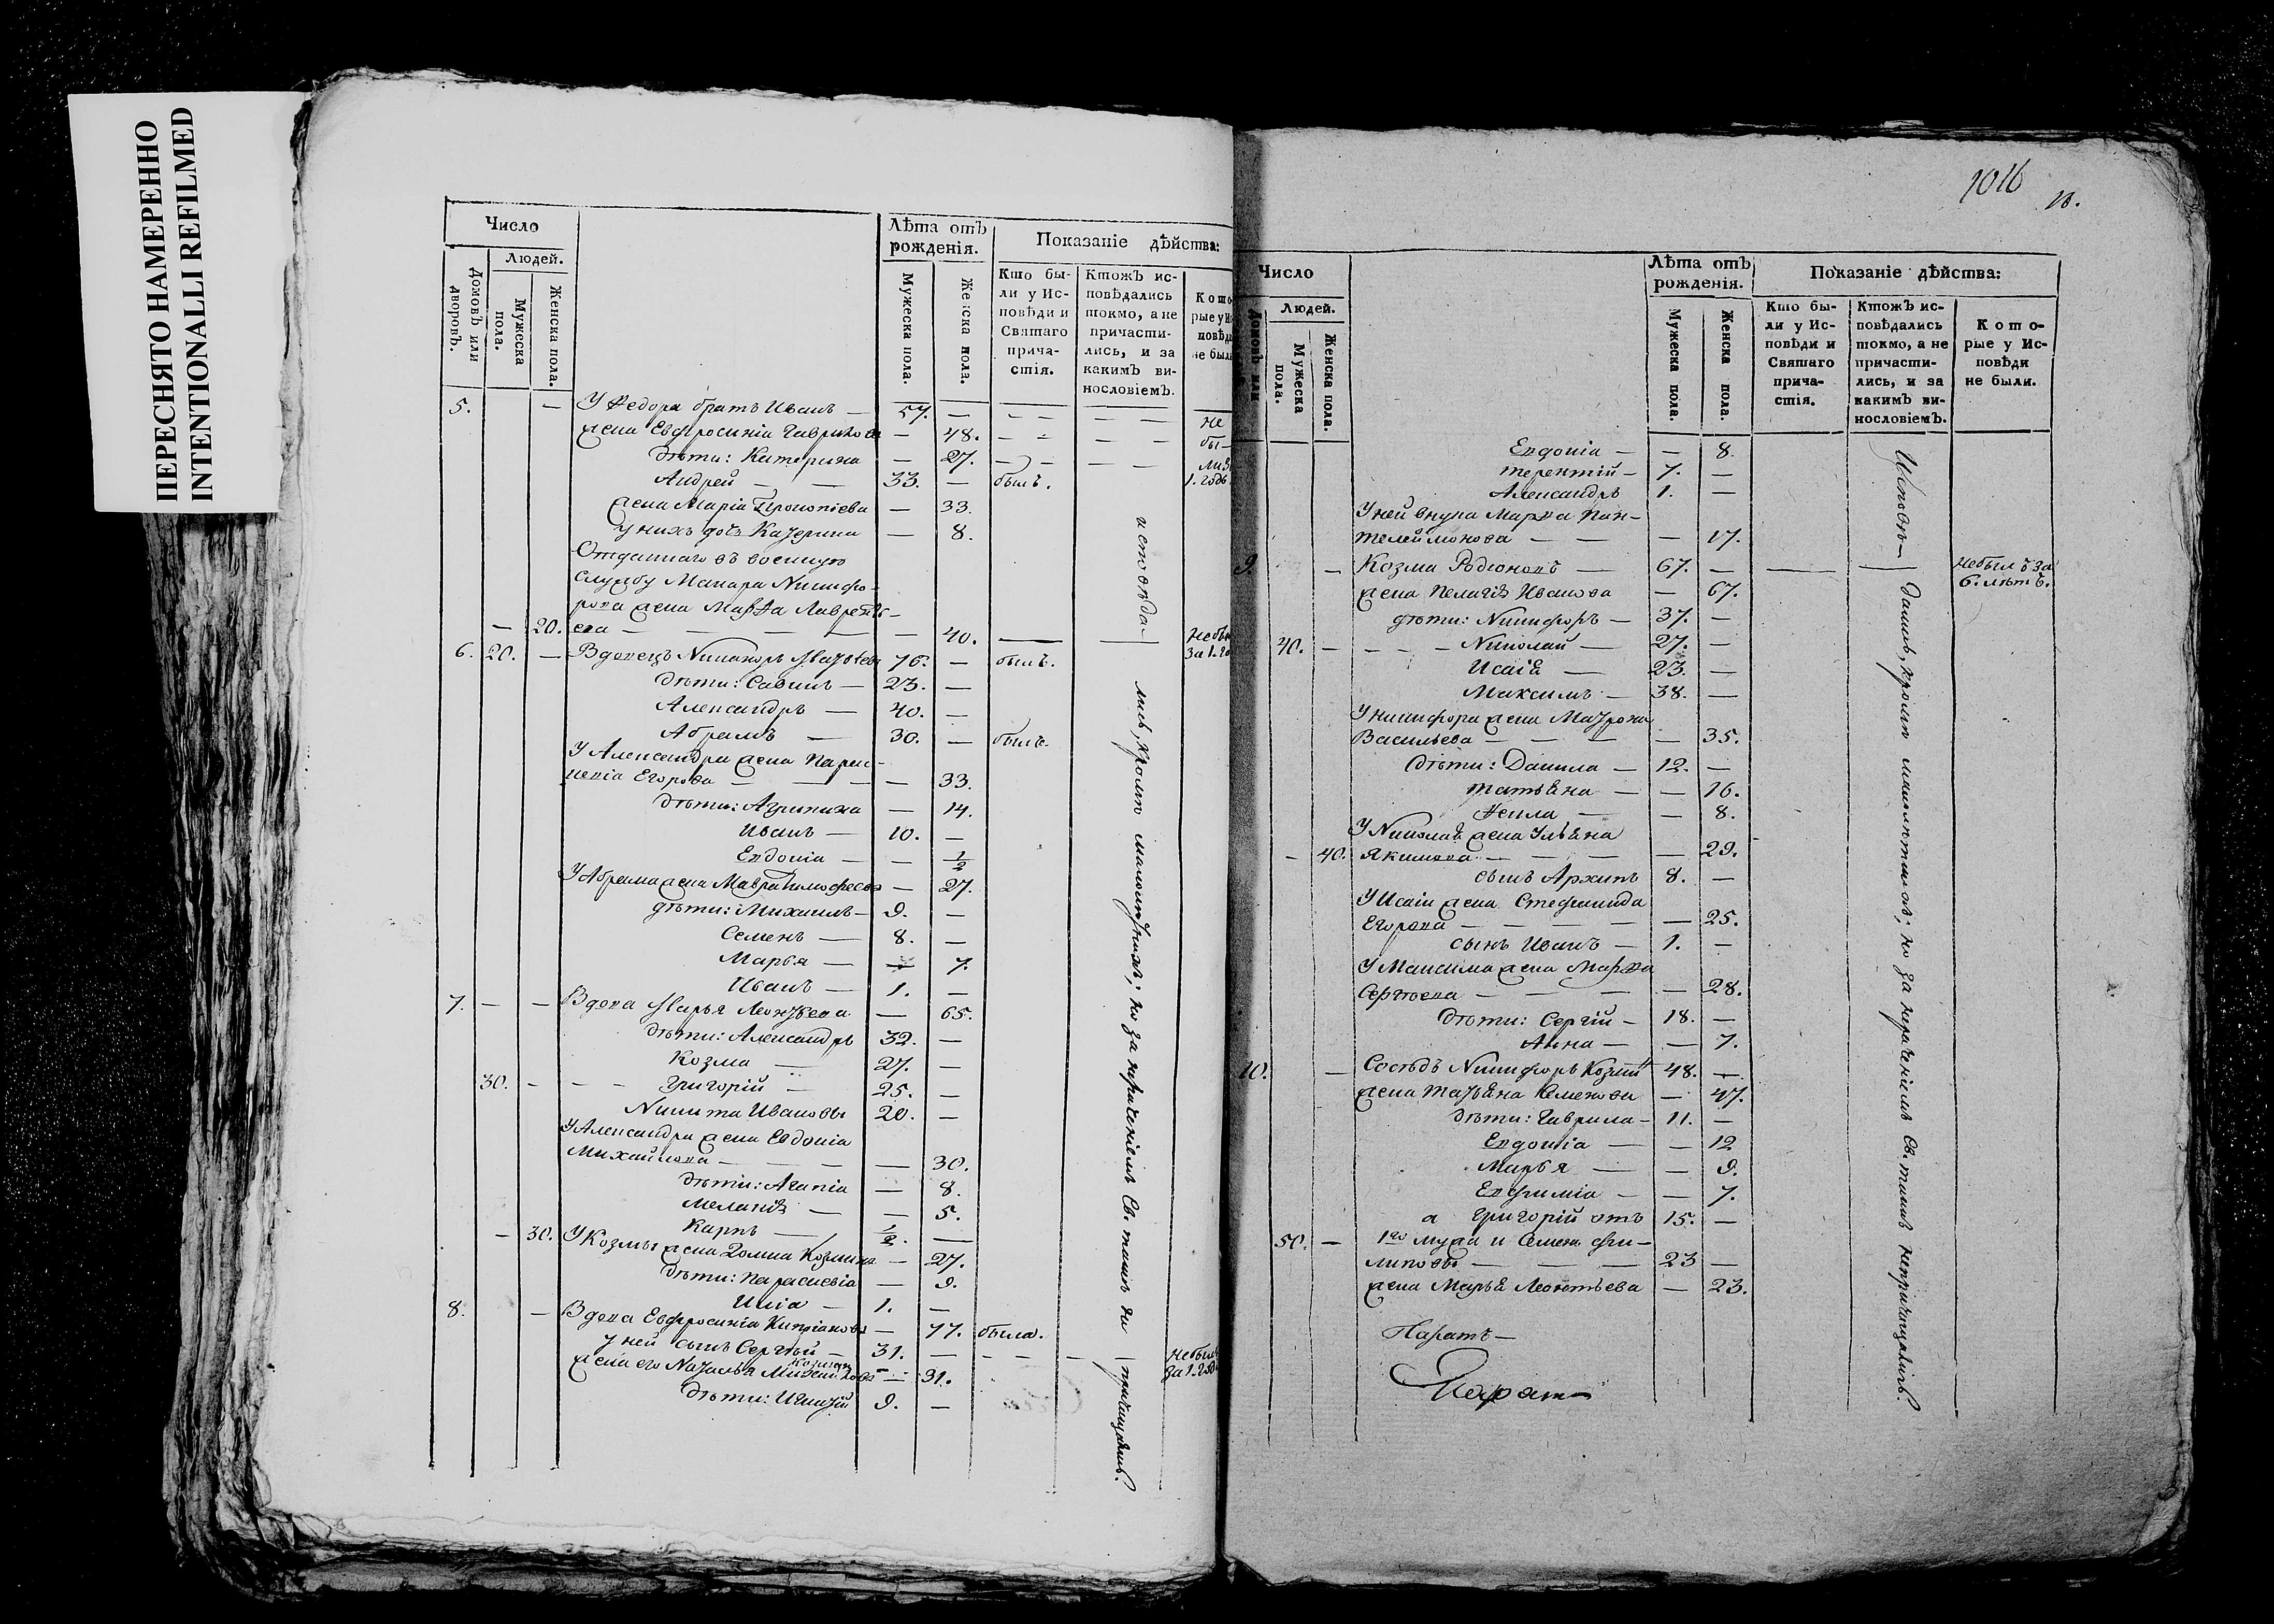 ПЕРЕСНЯТО НАМЕРЕННО
INTENTIONALLI REFILMED
Число
Людей.
Домовъ или дворовъ.
Мужеска пола.
Женска пола.
Лѣта отъ рожденія.
Мужеска пола.
Женска пола.
Показаніе дѣйства:
Кто бы-
ли у Ис-
повѣди и
Святаго
прича-
стія.
Ктожъ ис-
повѣдались
токмо, а не
причасти-
лись, и за
какимъ ви-
нословіемъ.
Кото
рые у Ис
повѣди
не были
5. — У Федора братъ Иванъ — 57. —
жена Евфросинія Гаврилова — 48. — Не
дѣти: Катерина — 27. — бы-
Андрей — 33. — былъ. 1. годъ
жена Марія Прокопіева — 33.
у нихъ дочь Катерина — 8.
Отданнаго въ военную
службу Макара Никифо-
рова жена Марѳа Лавренть-
— 20. ева — 40. — Небы
6. 20. — Вдовецъ Никаноръ Матвеевъ 76. — былъ. За 1. го
дѣти: Савинъ — 23. —
Александръ — 40. —
Абрамъ — 30. — былъ.
У Александра жена Парас-
кевіа Егорова — 33.
дѣти: Агрипина — 14.
Иванъ — 10. —
Евдокіа — 1/2
У Абрама жена Мавра Тимофеева — 27.
дѣти: Михаилъ — 9. —
Семенъ — 8. —
Марья — 7.
Иванъ — 1. —
7. — — Вдова Марья Леонтьева — 65.
дѣти: Александръ 32. —
Козма — 27. —
30. — — Григорій — 25. —
Никита Ивановы 20. —
У Александра жена Евдокіа
Михайлова — 30.
дѣти: Агапіа — 8.
Меланіѣ — 5.
Карпъ — 1/2. —
— 30. У Козмы жена Домна Козмина — 27.
дѣти: Параскевіа — 9.
Иліа — 1. —
8. — Вдова Евфросиніа Кипріанова — 77. была.
у ней сынъ Сергѣй — 31. — Небылъ
жена его Наталья — 31. За 1. год
дѣти: Игнатій 9. —
исповѣда-
лись, кромѣ малолѣтнихъ; но за нераченіемъ Св. таинъ не причащались.
1016
10.
Число
Людей.
Домовъ или
Мужеска пола.
Женска пола.
Лѣта отъ рожденія.
Мужеска пола.
Женска пола.
Показаніе дѣйства:
Кто бы-
ли у Ис-
повѣди и
Святаго
прича-
стія.
Ктожъ ис-
повѣдались
токмо, а не
причасти-
лись, и за
какимъ ви-
нословіемъ.
Кото-
рые у Ис-
повѣди
не были.
Евдокіа — — 8.
Терентій — 7. —
Александръ 1. —
У ней внука Марѳа Пан-
телеймонова — — 17.
9. — Козма Родіоновъ — 67. — Небылъ за
жена Пелагіѣ Иванова — 67. 6. лѣтъ.
дѣти: Никифоръ — 37. —
40. — — Николай — 27. —
Исаіѣ — 23. —
Максимъ — 38. —
У Никифора жена Матрона
Васильева — — 35.
Дѣти: Данила — 12. —
Татьѣна — — 16.
Фекла — — 8.
У Николаѣ жена Ульѣна
— 40. Якимова — — 29.
сынъ Архипъ 8. —
У Исаіи жена Стефанида
Егорова — — 25.
сынъ Иванъ — 1. —
У Максима жена Марѳа
Сергѣева — — 28.
Дѣти: Сергій — 18. —
Анна — — 7.
10. — Сосѣдъ Никифоръ 48. —
жена Татьѣна Семенова — 47.
дѣти: Гаврила — 11. —
Евдокіа — — 12
Марья — — 9.
Евфиміа — — 7.
а Григорій отъ 15. —
50. — 1го мужа и Семенъ Фи-
липовы — 23 —
жена Марьѣ Леонтьева — 23.
Исповѣ-
дались, кромѣ малолѣтнихъ; но за нераченіемъ Св. таинъ непричащались.